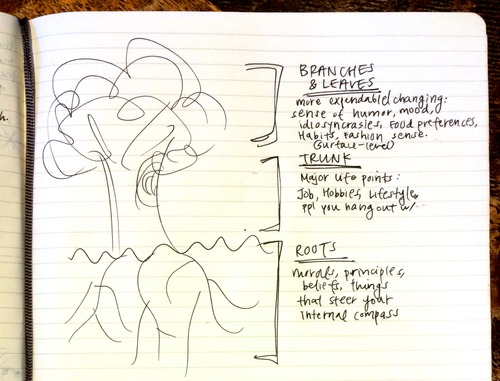 BRANCHES
& LEAVES
more expendable/changing:
sense of humor, mood,
idiosyncrasies, Food preferences,
Habits, Fashion sense.
(surface-level)
TRUNK
Major life points:
Job, Hobbies, Lifestyle,
ppl you hang out w/
ROOTS
morals, principles,
beliefs, things
that steer your
internal compass